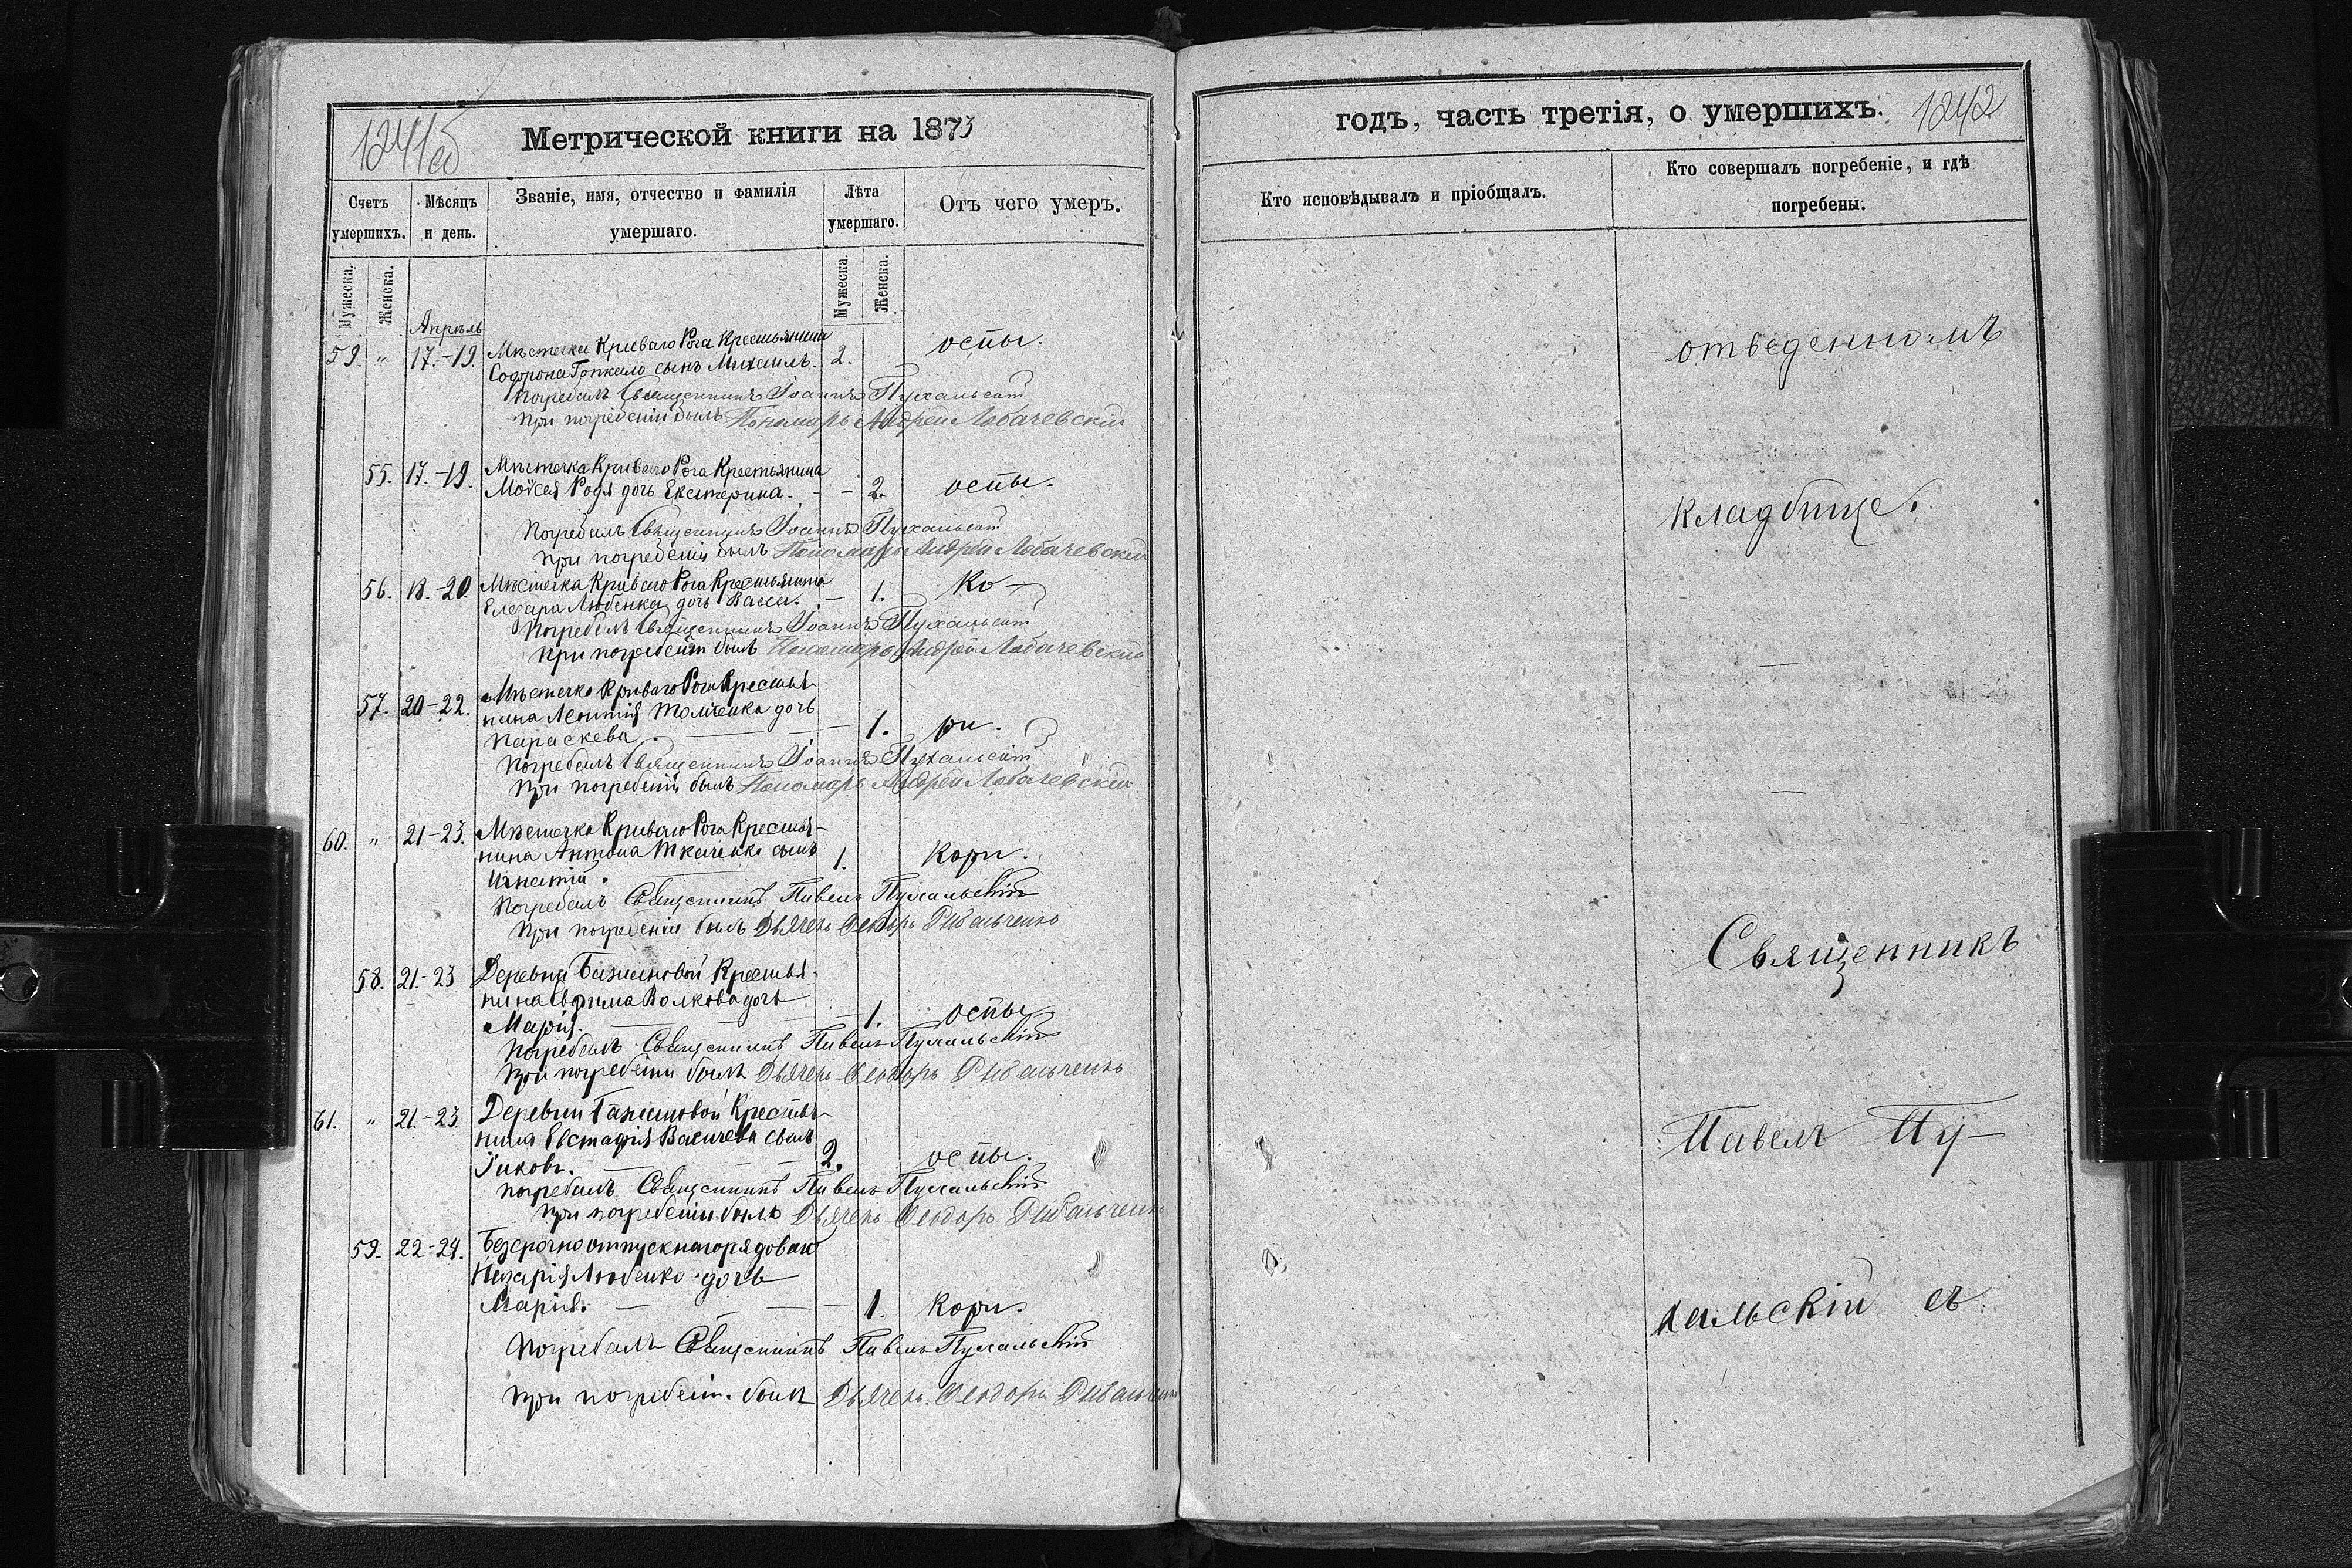 1241об
Метрической книги на 1873
Счетъ умершихъ.
Мѣсяцъ и день.
Званіе, имя, отчество и фамилія умершаго.
Лѣта умершаго.
Отъ чего умеръ.
Мужеска.
Женска.
Мужеска.
Женска.
Апрѣль
59. " 17.-19. Мѣстечка Криваго Рога Крестьянина 2. оспы.
Софрона Гопкало сынъ Михаилъ.
Погребалъ Священникъ Іоаннъ Пухальскій
При погребеніи былъ Пономарь Андрей Лобачевскій
55. 17.-19. Мѣстечка Криваго Рога Крестьянина
Мойсея Родя дочь Екатерина. - - 2. оспы.
Погребалъ Священникъ Іоаннъ Пухальскій
При погребеніи былъ Пономарь Андрей Лобачевскій
56. 18.-20. Мѣстечка Криваго Рога Крестьянина 1. Ко-
Елезара Любенка дочь Васса. -
Погребалъ Священникъ Іоаннъ Пухальскій
При погребеніи былъ Пономарь Андрей Лобачевскій
57. 20-22. Мѣстечка Криваго Рога Крестья-
нина Леонтія Толченка дочь
Параскева. - 1. ри.
Погребалъ Священникъ Іоаннъ Пухальскій
При погребеніи былъ Пономарь Андрей Лобачевскій
60. " 21-23. Мѣстечка Криваго Рога Крестья-
нина Антона Ткаченко сынъ 1. Кори.
Игнатій.
Погребалъ Священникъ Павелъ Пухальскій
При погребеніи былъ Дьячекъ Феодоръ
58. 21-23 Деревни Крестья-
нина Волкова дочь
Марія. - 1. оспы
Погребалъ Священникъ Павелъ Пухальскій
При погребеніи былъ Дьячекъ Феодоръ
61. " 21-23. Деревни Крестья-
нина Евстафія сынъ
Іяковъ. - 2. оспы.
Погребалъ Священникъ Павелъ Пухальскій
При погребеніи былъ Дьячекъ Феодоръ
59. 22-24. Безсрочно отпускнаго рядоваго
Назарія Любенко дочь
Марія. - 1. Кори.
Погребалъ Священникъ Павелъ Пухальскій
При погребеніи былъ Дьячекъ Феодоръ
годъ, часть третія, о умершихъ.
1242
Кто исповѣдывалъ и пріобщалъ.
Кто совершалъ погребеніе, и гдѣ погребены.
отведенномъ
кладбище.
Священникъ
Павелъ Пу-
хальскій съ